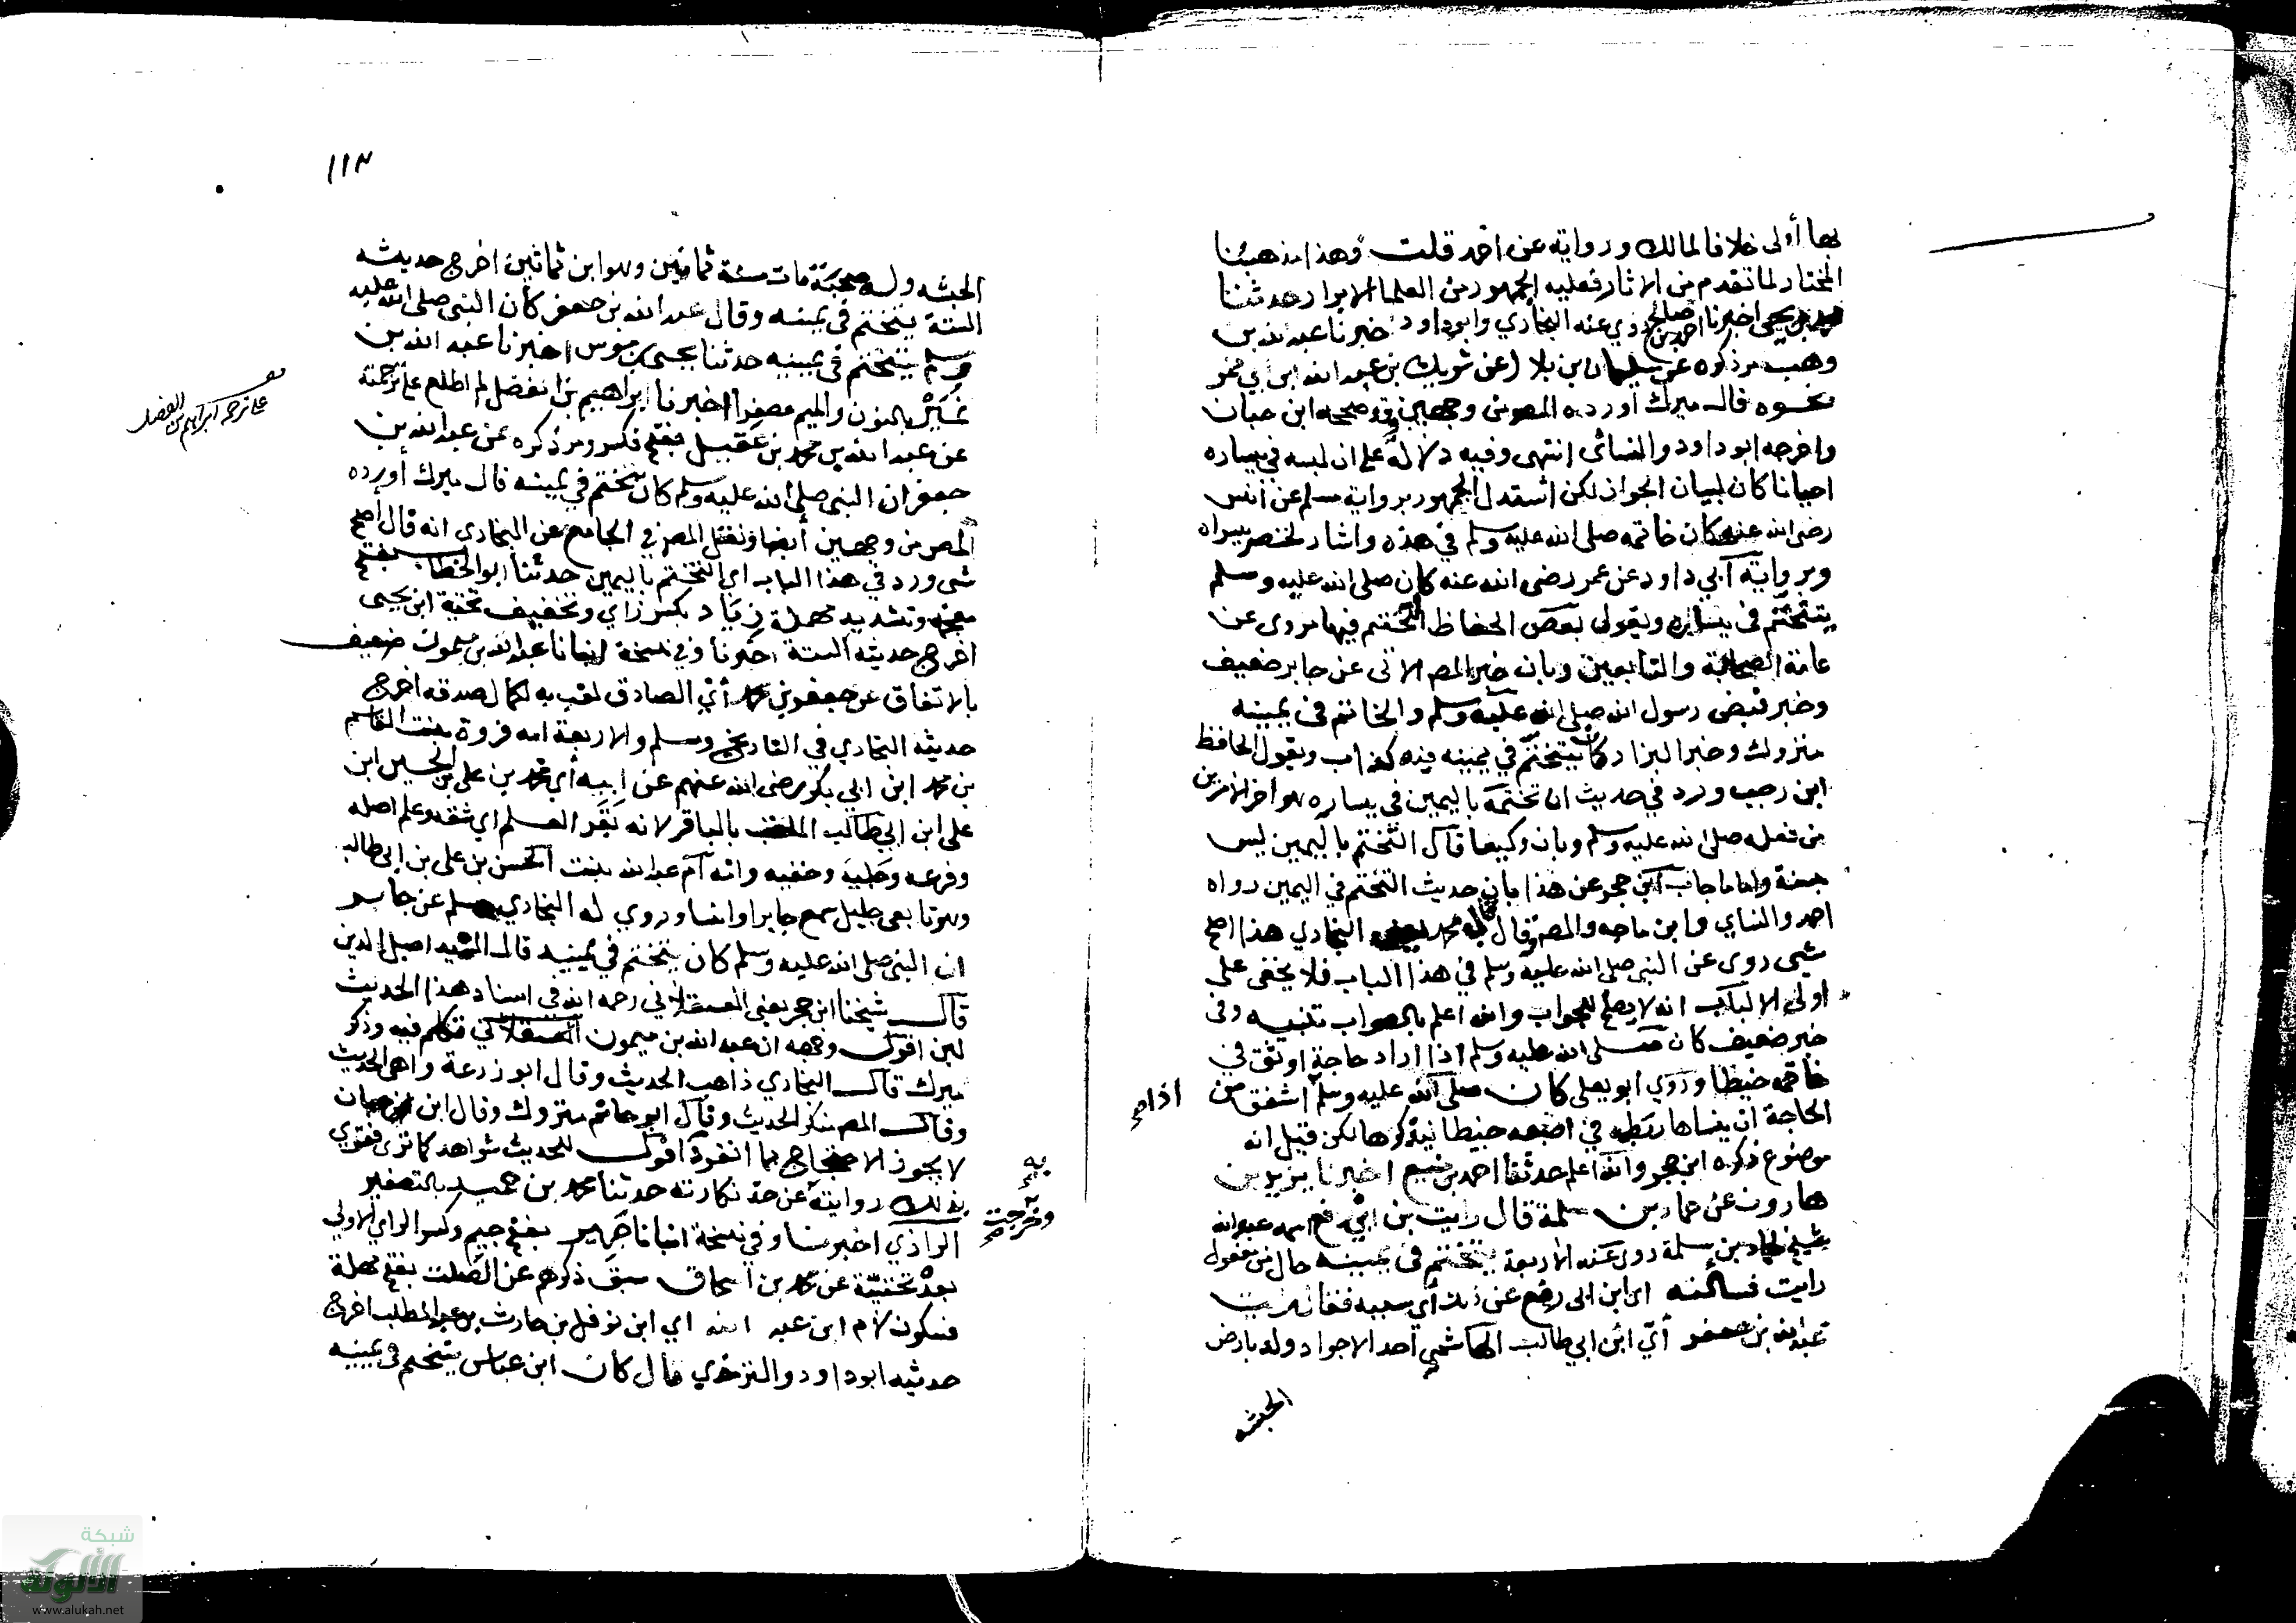 بها أولى خلافا لمالك ورواية عن احمد قلت وهذا مذهبنا
المختار لما تقدم من الاثار فعليه الجمهور من العلما الابرار حدثنا
محمد بن يحيى اخبرنا احمد بن صالح روي عنه البخاري وابوداود اخبرنا عبد الله بن
وهب مر ذكره عن سليمان بن بلال عن شريك بن عبد الله ابن ابي نمر
نحوه قال ميرك أورده المص من وجهين وقد صححه ابن حبان
واخرجه ابو داود والنسائى انتهى وفيه دلالة على ان لبسه في يساره
احيانا كان لبيان الجواز لكن استدل الجمهور برواية مسلم عن انس
رضى الله عنه كان خاتمه صلى الله عليه وسلم في هذه واشار لخنصر يسراه
وبرواية أبي داود عن عمر رضى الله عنه كان صلى الله عليه وسلم
يتختم فى يساره وبقول بعض الحفاظ التختم فيها مروى عن
عامة الصحابة والتابعين وبان خبر المص الاتى عن جابر ضعيف
وخبر قبض رسول الله صلى الله عليه وسلم والخاتم فى يمينه
متروك وخبر البزار كان يتختم في يمينه فيه كذاب وبقول الحافظ
ابن رجب ورد في حديث ان تختمه باليمين في يساره هو اخر الامرين
من فعله صلى الله عليه وسلم وبان وكيعا قال التختم باليمين ليس
بسنة واما ما جاب ابن حجر عن هذا بان حديث التختم في اليمين رواه
احمد والنساي وابن ماجه والمص وقال قال محمد يعنى البخاري هذا اصح
شيى روى عن النبى صلى الله عليه وسلم في هذا الباب فلا يخفى على
اولى الالباب انه لا يصلح للجواب والله اعلم بالصواب تنبيه وفى
خبر ضعيف كان صلى الله عليه وسلم اذا اراد حاجة اوثق في
خاتمه خيطا وروي ابو يعلى كان صلى الله عليه وسلم اشفق من
اذا صح
الحاجة ان ينساها ربط في اصبعه خيطا ليذكرها لكن قيل انه
موضوع ذكره ابن حجر والله اعلم حدثنا احمد بن منيع اخبرنا يزيد بن
هارون عن حماد بن سلمة قال رايت بن ابي رافع اسمه عبد الله
شيخ لحماد بن سلمة روى عنه الاربعة يتختم فى يمينه حال من مفعول
رايت فسالته اى ابن ابى رافع عن ذلك أي سببه فقال رايت
عبد الله بن جعفر أي ابن ابي طالب الهاشمي احد الاجواد ولد بارض
الحبشه
١١٣
الحبشه وله صحبة مات سنة ثمانين وهو ابن ثمانين اخرج حديثه
الستة يتختم فى يمينه وقال عبد الله بن جعفر كان النبى صلى الله عليه
وسلم يتختم فى يمينه حدثنا يحيى بن موسى اخبرنا عبد الله بن
نمير بالنون والميم مصغرا اخبرنا ابراهيم بن الفضل لم اطلع على ترجمته
على ترجمة ابراهيم بن الفضل
عن عبد الله بن محمد بن عقيل بفتح فكسر ومر ذكره عن عبد الله بن
جعفر ان النبى صلى الله عليه وسلم كان يتختم في يمينه قال ميرك أورده
المص من وجهين أيضا ونقل المص في الجامع عن البخارى انه قال اصح
شى ورد في هذا الباب اي التختم باليمين حدثنا ابو الخطاب بفتح
معجمة وتشديد مهملة زياد بكسر زاي وتخفيف تحتية ابن يحيى
اخرج حديثه الستة اخبرنا وفي نسخة انبانا عبد الله بن ميمون ضعيف
بالاتفاق عن جعفر بن محمد أي الصادق لقب به لكمال صدقه اخرج
حديثه البخاري في التاريخ ومسلم والاربعة امه فروة بنت القاسم
بن محمد ابن ابي بكر رضى الله عنهم عن ابيه أي محمد بن علي بن الحسين ابن
على ابن ابي طالب الملقب بالباقر لانه بقر العلم اي شقه وعلم اصله
وفرعه وجليه وخفيه وامه ام عبد الله بنت الحسن بن على بن ابى طالب
وهو تابعى جليل سمع جابرا وانسا وروي له البخاري ومسلم عن جابر
ان النبى صلى الله عليه وسلم كان يتختم في يمينه قال السيد اصيل الدين
قال شيخنا ابن حجر يعنى العسقلاني رحمه الله في اسناد هذا الحديث
لين اقول وجهه ان عبد الله بن ميمون تكلم فيه وذكر
ميرك قال البخاري ذاهب الحديث وقال ابو زرعة واهى الحديث
وقال المص منكر الحديث وقال ابو حاتم متروك وقال ابن حبان
لا يجوز الاحتجاج بما انفرد اقول للحديث شواهد كما ترى فقوي
به صح
بذلك روايته عن حد نكارته حدثنا محمد بن حميد بالتصغير
وخرجت صح
الرازي اخبرنا وفي نسخة انبانا جرير بفتح جيم وكسر الراي الاولى
بعده تحتية عن محمد بن اسحاق سبق ذكرهم عن الصلت بفتح مهملة
فسكون لام ابن عبد الله اي ابن نوفل بن حارث بن عبد المطلب اخرج
حديثه ابوداود والترمذي قال كان ابن عباس يتختم فى يمينه
شبكة
الألوكة
www.alukah.net